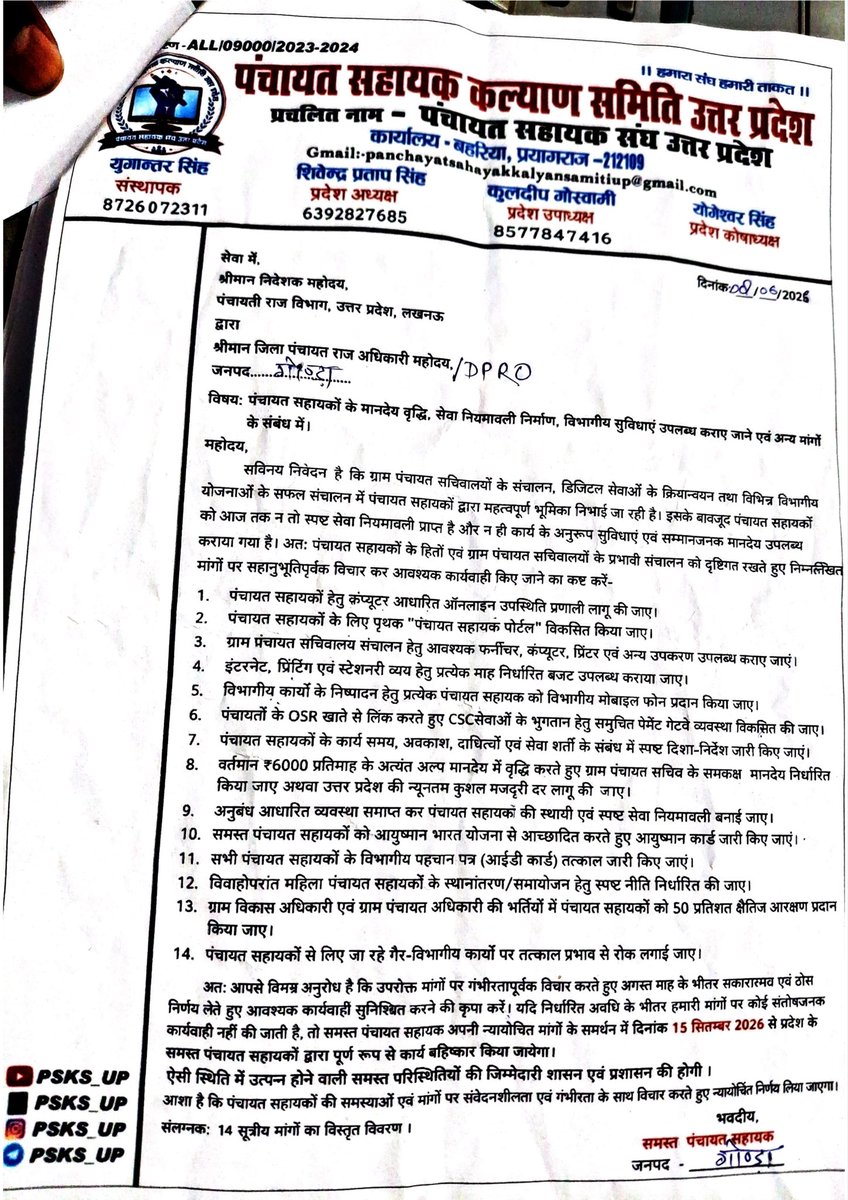 -ALL/09000/2023-2024
।। हमारा संघ हमारी ताकत ।।
पंचायत सहायक कल्याण समिति उत्तर प्रदेश
प्रचलित नाम - पंचायत सहायक संघ उत्तर प्रदेश
कार्यालय - बहरिया, प्रयागराज -212109
Gmail:-panchayatsahayakkalyansamitiup@gmail.com
पंचायत सहायक संघ उत्तर प्रदेश
युगान्तर सिंह
संस्थापक
8726072311
शिवेन्द्र प्रताप सिंह
प्रदेश अध्यक्ष
6392827685
कुलदीप गोस्वामी
प्रदेश उपाध्यक्ष
8577847416
योगेश्वर सिंह
प्रदेश कोषाध्यक्ष
सेवा में,
दिनांक:08/06/2026
श्रीमान निदेशक महोदय,
पंचायती राज विभाग, उत्तर प्रदेश, लखनऊ
द्वारा
श्रीमान जिला पंचायत राज अधिकारी महोदय,/DPRO
जनपद......गोण्डा............
विषय: पंचायत सहायकों के मानदेय वृद्धि, सेवा नियमावली निर्माण, विभागीय सुविधाएं उपलब्ध कराए जाने एवं अन्य मांगों
के संबंध में।
महोदय,
सविनय निवेदन है कि ग्राम पंचायत सचिवालयों के संचालन, डिजिटल सेवाओं के क्रियान्वयन तथा विभिन्न विभागीय
योजनाओं के सफल संचालन में पंचायत सहायकों द्वारा महत्वपूर्ण भूमिका निभाई जा रही है। इसके बावजूद पंचायत सहायकों
को आज तक न तो स्पष्ट सेवा नियमावली प्राप्त है और न ही कार्य के अनुरूप सुविधाएं एवं सम्मानजनक मानदेय उपलब्ध
कराया गया है। अत: पंचायत सहायकों के हितों एवं ग्राम पंचायत सचिवालयों के प्रभावी संचालन को दृष्टिगत रखते हुए निम्नलिखित
मांगों पर सहानुभूतिपूर्वक विचार कर आवश्यक कार्यवाही किए जाने का कष्ट करें-
1. पंचायत सहायकों हेतु कंप्यूटर आधारित ऑनलाइन उपस्थिति प्रणाली लागू की जाए।
2. पंचायत सहायकों के लिए पृथक "पंचायत सहायक पोर्टल" विकसित किया जाए।
3. ग्राम पंचायत सचिवालय संचालन हेतु आवश्यक फर्नीचर, कंप्यूटर, प्रिंटर एवं अन्य उपकरण उपलब्ध कराए जाएं।
4. इंटरनेट, प्रिंटिंग एवं स्टेशनरी व्यय हेतु प्रत्येक माह निर्धारित बजट उपलब्ध कराया जाए।
5. विभागीय कार्यो के निष्पादन हेतु प्रत्येक पंचायत सहायक को विभागीय मोबाइल फोन प्रदान किया जाए।
6. पंचायतों के OSR खाते से लिंक करते हुए CSCसेवाओं के भुगतान हेतु समुचित पेमेंट गेटवे व्यवस्था विकसित की जाए।
7. पंचायत सहायकों के कार्य समय, अवकाश, दायित्वों एवं सेवा शर्तो के संबंध में स्पष्ट दिशा-निर्देश जारी किए जाएं।
8. वर्तमान ₹6000 प्रतिमाह के अत्यंत अल्प मानदेय में वृद्धि करते हुए ग्राम पंचायत सचिव के समकक्ष मानदेय निर्धारित
किया जाए अथवा उत्तर प्रदेश की न्यूनतम कुशल मजदूरी दर लागू की जाए।
9. अनुबंध आधारित व्यवस्था समाप्त कर पंचायत सहायकों की स्थायी एवं स्पष्ट सेवा नियमावली बनाई जाए।
10. समस्त पंचायत सहायकों को आयुष्मान भारत योजना से आच्छादित करते हुए आयुष्मान कार्ड जारी किए जाएं।
11. सभी पंचायत सहायकों के विभागीय पहचान पत्र (आईडी कार्ड) तत्काल जारी किए जाएं।
12. विवाहोपरांत महिला पंचायत सहायकों के स्थानांतरण/समायोजन हेतु स्पष्ट नीति निर्धारित की जाए।
13. ग्राम विकास अधिकारी एवं ग्राम पंचायत अधिकारी की भर्तियों में पंचायत सहायकों को 50 प्रतिशत क्षैतिज आरक्षण प्रदान
किया जाए।
14. पंचायत सहायकों से लिए जा रहे गैर-विभागीय कार्यो पर तत्काल प्रभाव से रोक लगाई जाए।
अत: आपसे विनम्र अनुरोध है कि उपरोक्त मांगों पर गंभीरतापूर्वक विचार करते हुए अगस्त माह के भीतर सकारात्मक एवं ठोस
निर्णय लेते हुए आवश्यक कार्यवाही सुनिश्चित करने की कृपा करें। यदि निर्धारित अवधि के भीतर हमारी मांगों पर कोई संतोषजनक
कार्यवाही नहीं की जाती है, तो समस्त पंचायत सहायक अपनी न्यायोचित मांगों के समर्थन में दिनांक 15 सितम्बर 2026 से प्रदेश के
समस्त पंचायत सहायकों द्वारा पूर्ण रूप से कार्य बहिष्कार किया जायेगा।
ऐसी स्थिति में उत्पन्न होने वाली समस्त परिस्थितियों की जिम्मेदारी शासन एवं प्रशासन की होगी ।
आशा है कि पंचायत सहायकों की समस्याओं एवं मांगों पर संवेदनशीलता एवं गंभीरता के साथ विचार करते हुए न्यायोचित निर्णय लिया जाएगा।
भवदीय,
संलग्नक: 14 सूत्रीय मांगों का विस्तृत विवरण ।
समस्त पंचायत सहायक
जनपद - गोण्डा
PSKS_UP
PSKS_UP
PSKS_UP
PSKS_UP